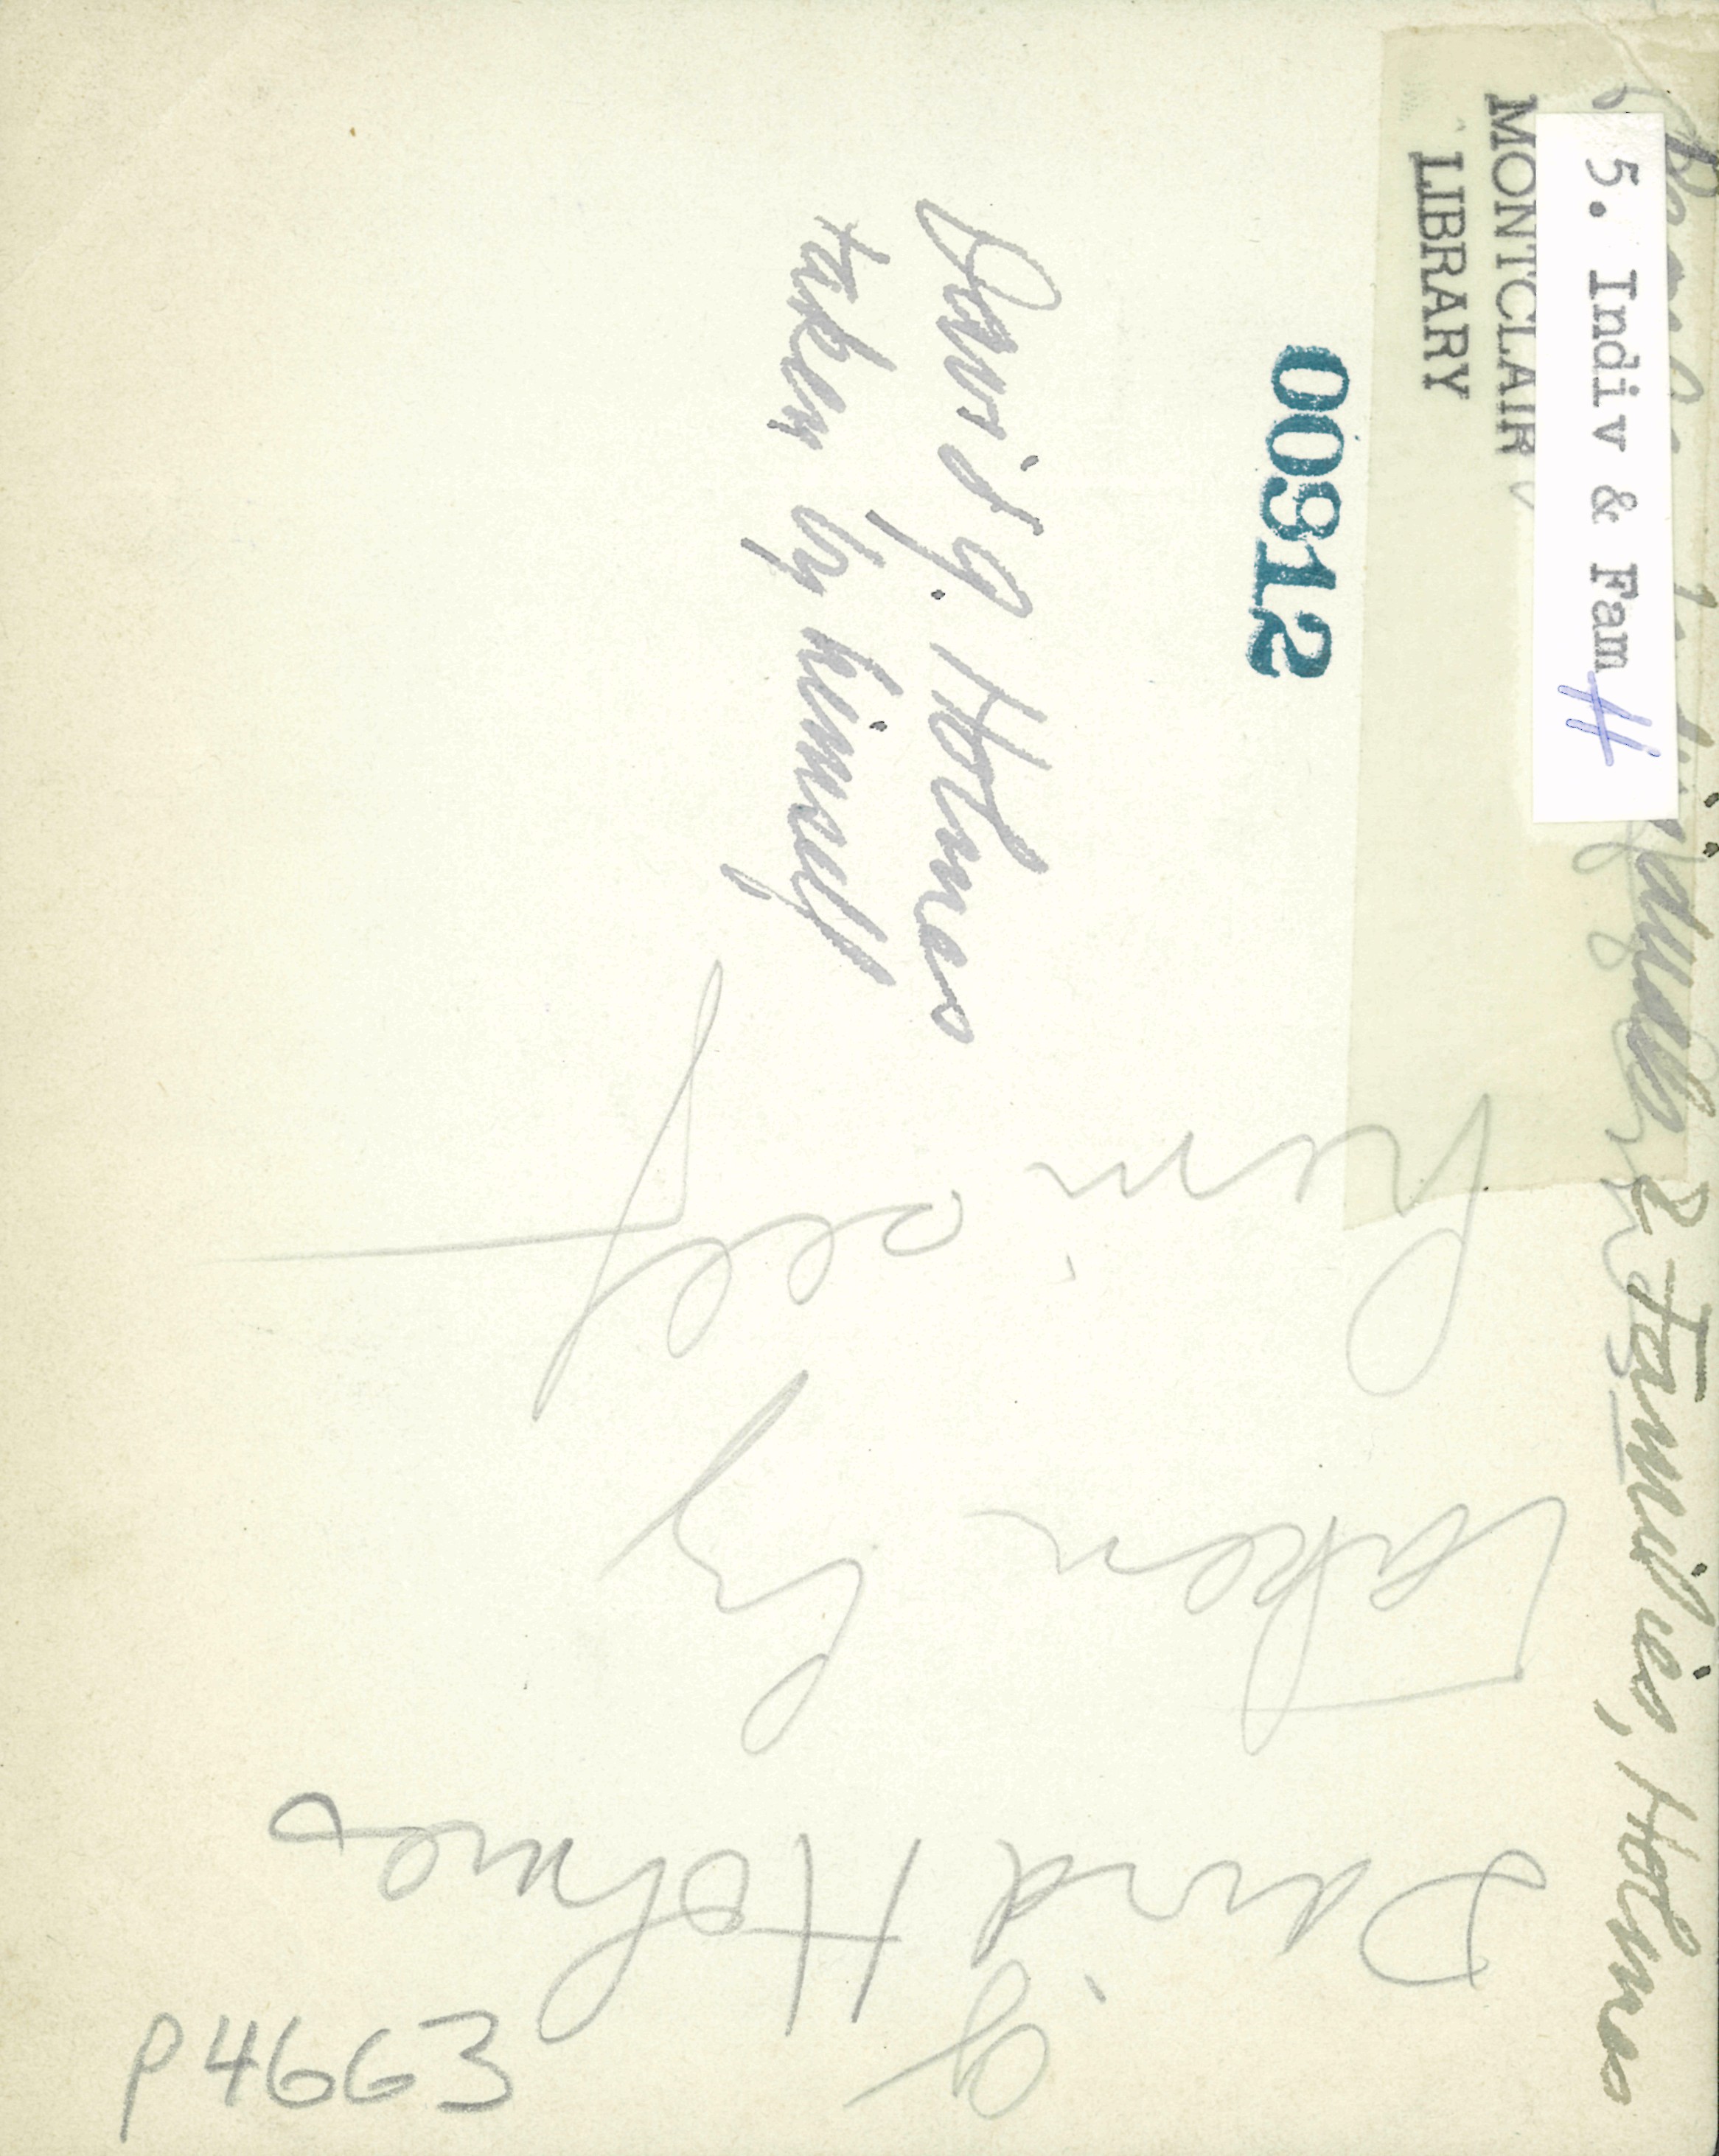 5. Indiv & Fam H
MONTCLAIR
LIBRARY
Individuals & Families, Holmes
00912
David G. Holmes
taken by himself
David G
Holmes
taken
by
him
self
P4663